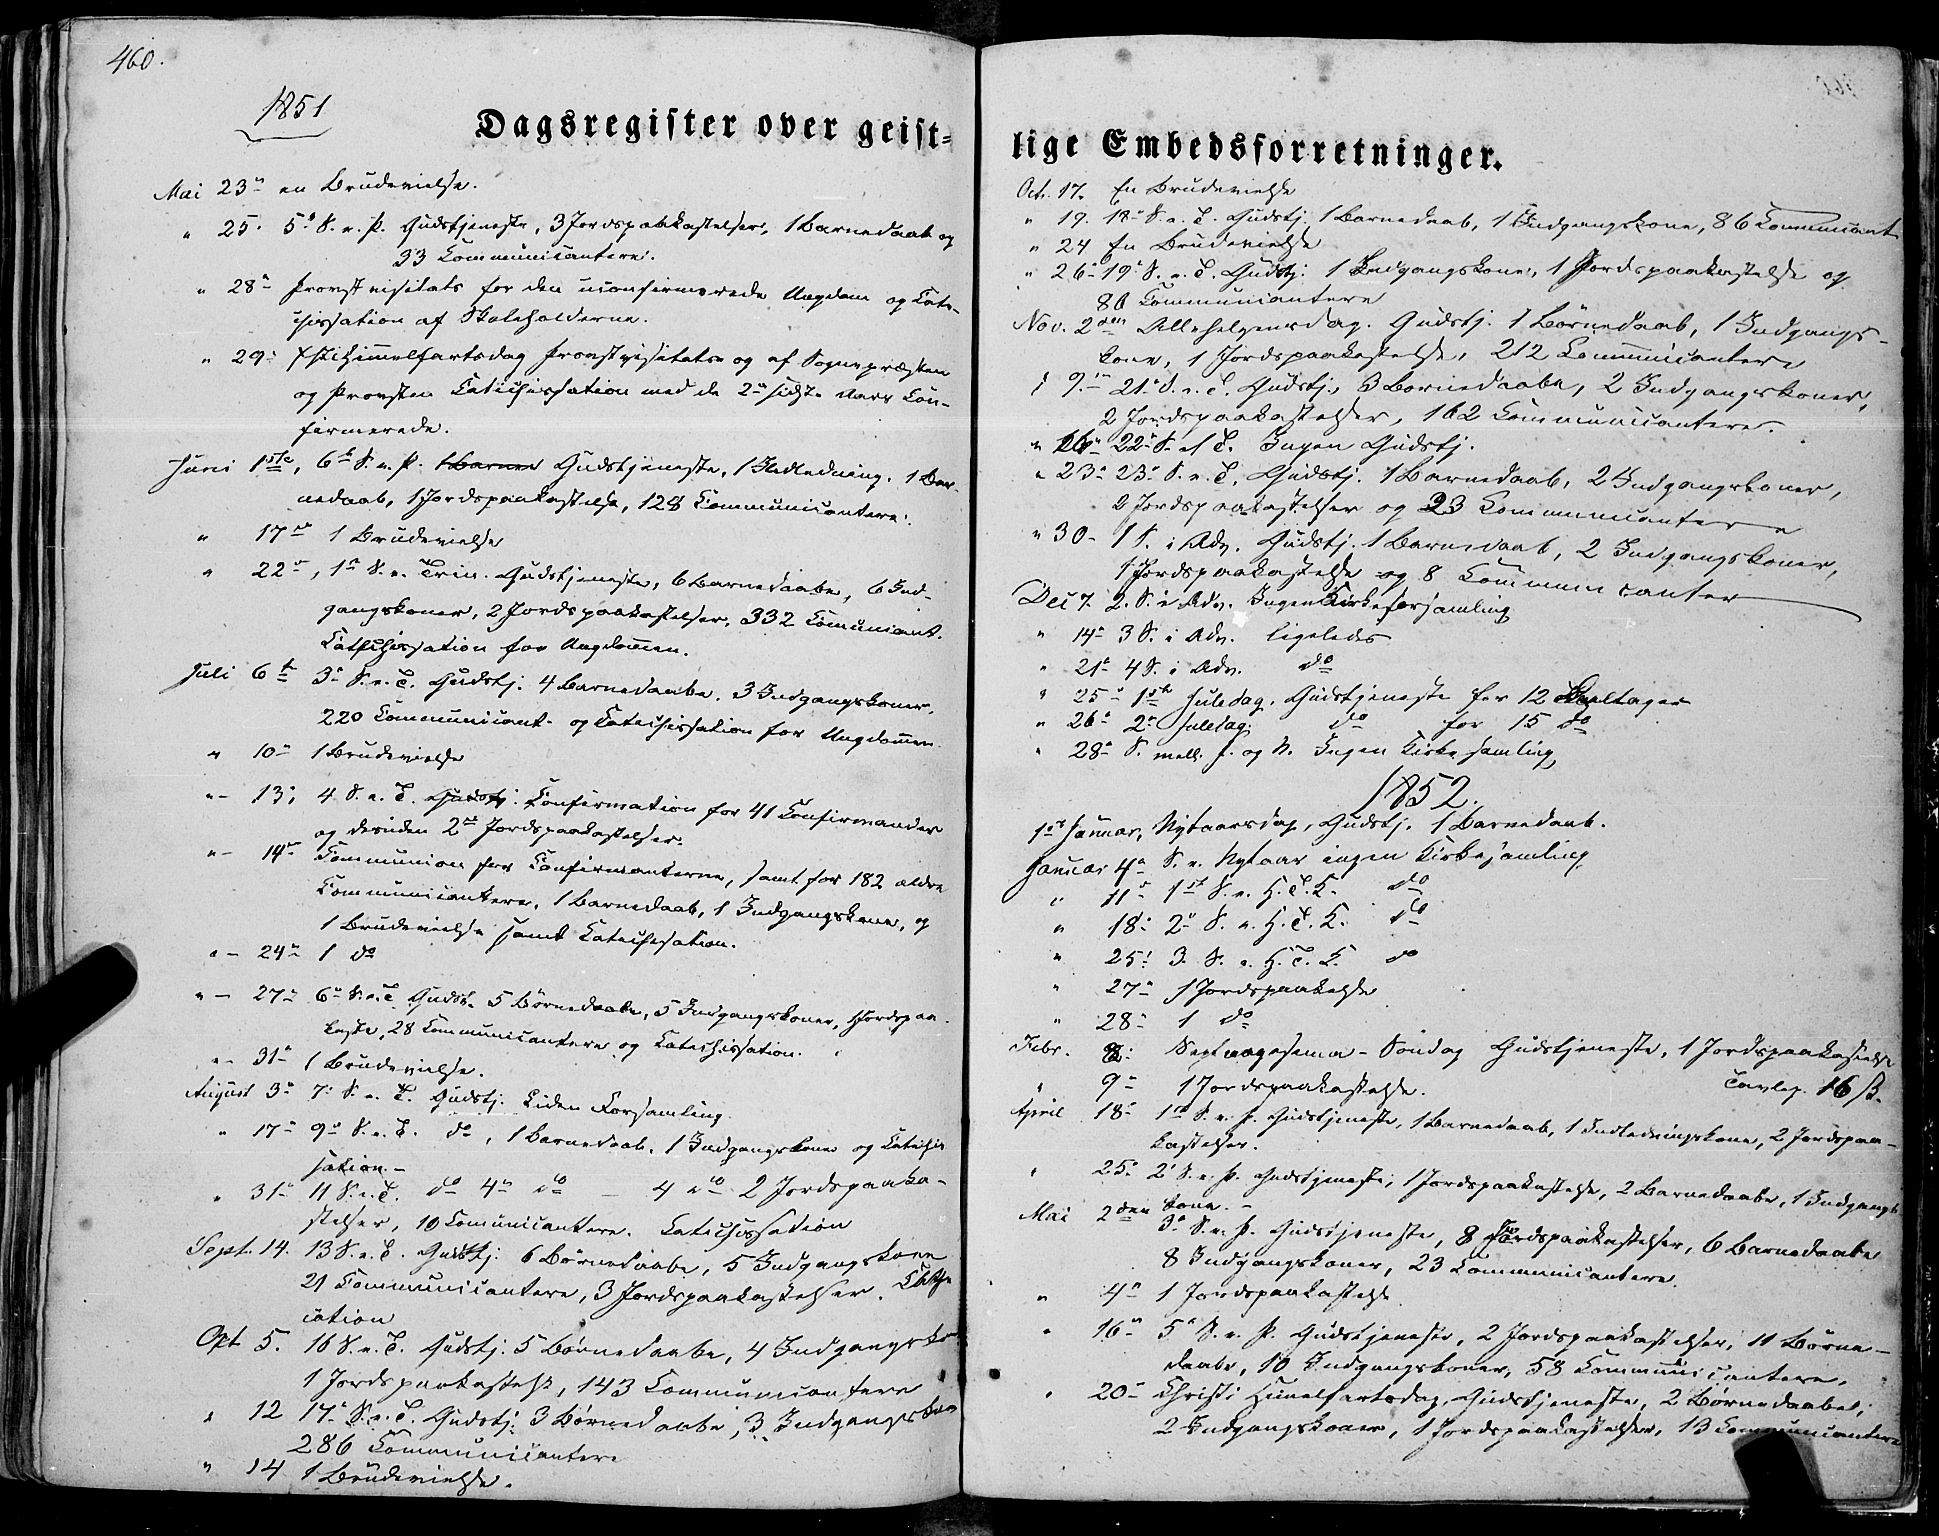 460.
1851
Dagsregister over geist=
Mai 23de en Brudevielse.
" 25. 5te S. e. P. Gudstjeneste, 3 Jordspaakastelser, 1 Barnedaab og
33 Communicantere.
" 28de Provstvisitats for den uconfirmerede Ungdom og Cate-
chisation af Skoleholderne.
" 29. Christi Himmelfartsdag Provstvisitats og af Sognepræsten
og Provsten Catechisation med de 2de sidste Aars Con-
firmerede.
Juni 1ste, 6te S. e. P. 1 Barned Gudstjeneste, 1 Indledning. 1 Bar-
nedaab, 1 Jordspaakastelse, 128 Communicantere.
" 17de 1 Brudevielse
" 22de, 1ste S. e. Trin. Gudstjeneste, 6 Barnedaabe, 6 Ind-
gangskoner, 2 Jordspaakastelser, 332 Comunicant.
Catechisation for Ungdommen.
Juli 6te 3de S. e. T. Gudstj. 4 Barnedaabe. 3 Indgangskoner,
220 Communicant. og Catechisation for Ungdommen.
" 10de 1 Brudevielse
" - 13. 4 S. e. T. Gudstj. Confirmation for 41 Confirmander
og desuden 2de Jordspaakastelser.
" - 14de Communion for Confirmanterne, samt for 182 ældre
Communicantere, 1 Barnedaab, 1 Indgangskone, og
1 Brudevielse samt Catechisation.
" - 24de 1 do
" - 27de 6te S. e. T. Gudst. 5 Børnedaabe, 5 Indgangskoner, 1 Jordspaa-
kaste, 28 Communicantere og Catechisation.
" - 31te 1 Brudevielse.
August 3de 7. S. e. T. Gudstj. Liden Forsamling.
" 17de 9de S. e. T. do, 1 Barnedaab, 1 Indgangskone og Catechis
sation. -
" 31te 11 S. e. T. do 4de do - 4 do 2 Jordspaaka-
stelser, 10 Comunicantere. Catechisation
Sept. 14. 13 S. e. T. Gudstj. 6 Børnedaabe, 5 Indgangskone
21 Communicantere, 3 Jordspaakastelser.
cation
Oct 5. 16 S. e. T. Gudstj. 5 Børnedaabe, 4 Indgangsko
1 Jordspaakastelse, 143 Communicantere
" 12 17de S. e. T. Gudstj. 3 Børnedaabe, 3 Indgangskon
286 Communicantere
" 14 1 Brudevielse.
lige Embedsforretninger.
Oct. 17. En Brudevielse
" 19. 18de S. e. T. Gudstj. 1 Barnedaab, 1 Indgangskone, 86 Communicant
" 24 En Brudevielse
" 26de 19de S. e. T. Gudstj. 1 Indgangskone, 1 Jordspaakastelse og
86 Communicantere
Nov. 2den Allehelgensdag. Gudstj. 1 Børnedaab, 1 Indgangs-
kone, 1 Jordspaakastelse, 212 Communicantere
" 9de 21de S. e. T. Gudstj., 3 Børnedaabe, 2 Indgangskoner,
2 Jordspaakastelser, 162 Communicantere.
" 16de 22de S. e. T. Ingen Gudstj.
" 23de 23de S. e. T. Gudstj. 1 Barnedaab, 2 Indgangskoner,
2 Jordspaakastelser og 23 Communicantere
" 30- 1 S. i Adv. Gudstj. 1 Barnedaab, 2 Indgangskoner,
1 Jordspaakastelse og 8 Communicanter
Dec 7. 2. S. i Adv. Ingen Kirkeforsamling
" 14de 3 S. i Adv. ligeledes
" 21de 4 S. i Adv. do
" 25de 1ste Juledag. Gudstjeneste for 12 Deeltager
" 26de 2de Juledag do for 15 do
" 28de S. mell. J. og N. Ingen Kirkesamling
1852.
1ste Januar, Nytaarsdag, Gudstj. 1 Barnedaab.
Januar 4de S. e. Nytaar ingen Kirkesamling
" 11te 1ste S. e. H. T. K. do
" 18de 2de S. e. H. T. K. do
" 25. 3. S. e. H. T. K. do
" 27de 1 Jordspaakelse
" 28de 1 do
Febr. 8. Septuagesima-Søndag Gudstjeneste, 1 Jordspaakastelse
" 9de 1 Jordspaakastelse. Tavlep. 16 ß.
April 18de 1ste S. e. P. Gudstjeneste, 1 Barnedaab, 1 Indledningskone, 2 Jordspaa-
kastelser.
" 25de 2. S. e. P. Gudstjeneste, 1 Jordspaakastelse, 2 Barnedaabe, 1 Indgangs
kone. -
Mai 2den 3de S. e. P. Gudstjeneste, 8 Jordspaakastelser, 6 Barnedaabe
8 Indgangskoner, 23 Communicantere.
" 4de 1 Jordspaakastelse
" 16de 5te S. e. P. Gudstjeneste, 2 Jordspaakastelser, 11 Børne-
daabe, 10 Indgangskoner, 58 Communicantere.
" 20de Christi Himelfartsdag, Gudstjeneste, 2 Børnedaabe,
2 Indgangskoner, 1 Jordspaakastelse, 13 Communicantere